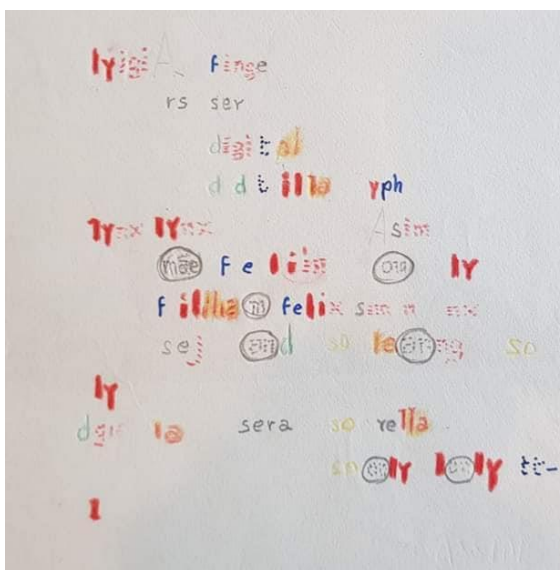 lyigiA finge
rs ser
digital
d d t illa yph
lynx lynx Asim
mae Felicia ora ly
filha m felix sim n nx
sej and so leaning so
ly
dgi la sera so rella
so only lonly
l